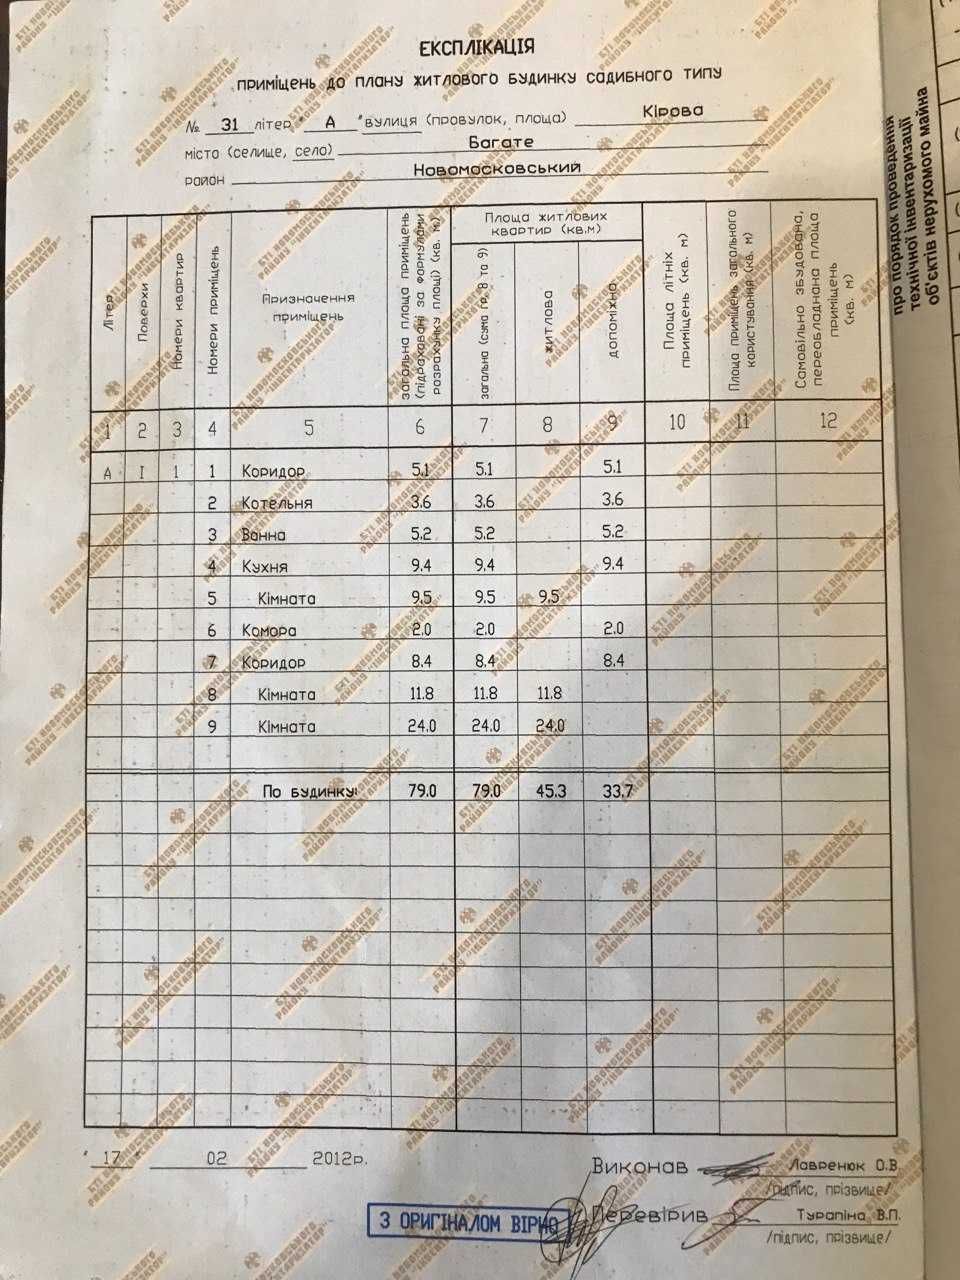 ЕКСПЛІКАЦІЯ
приміщень до плану житлового будинку садибного типу
№ 31 літер " А " вулиця (провулок, площа) Кірова
місто (селище, село) Багате
район Новомосковський
Літер
Поверхи
Номери квартир
Номери приміщень
Призначення
приміщень
загальна площа приміщень
(підраховані за формулами
розрахунку площі) (кв. м)
Площа житлових
квартир (кв.м)
загальна (сума гр. 8 та 9)
житлова
допоміжна
Площа літніх
приміщень (кв. м)
Площа приміщень загального
користування (кв. м)
Самовільно збудована,
переобладнана площа
приміщень
(кв. м)
1 2 3 4 5 6 7 8 9 10 11 12
А І 1 1 Коридор 5.1 5.1 5.1
2 Котельня 3.6 3.6 3.6
3 Ванна 5.2 5.2 5.2
4 Кухня 9.4 9.4 9.4
5 Кімната 9.5 9.5 9.5
6 Комора 2.0 2.0 2.0
7 Коридор 8.4 8.4 8.4
8 Кімната 11.8 11.8 11.8
9 Кімната 24.0 24.0 24.0
По будинку: 79.0 79.0 45.3 33.7
" 17 " 02 2012р.
Виконав Лавренюк О.В.
/підпис, прізвище/
Перевірив Турапіна В.П.
/підпис, прізвище/
З ОРИГІНАЛОМ ВІРНО
про порядок проведення
технічної інвентаризації
об'єктів нерухомого майна
БТІ НОВОМОСКОВСЬКОГО
РАЙОНУ "ІНВЕНТАРИЗАТОР"